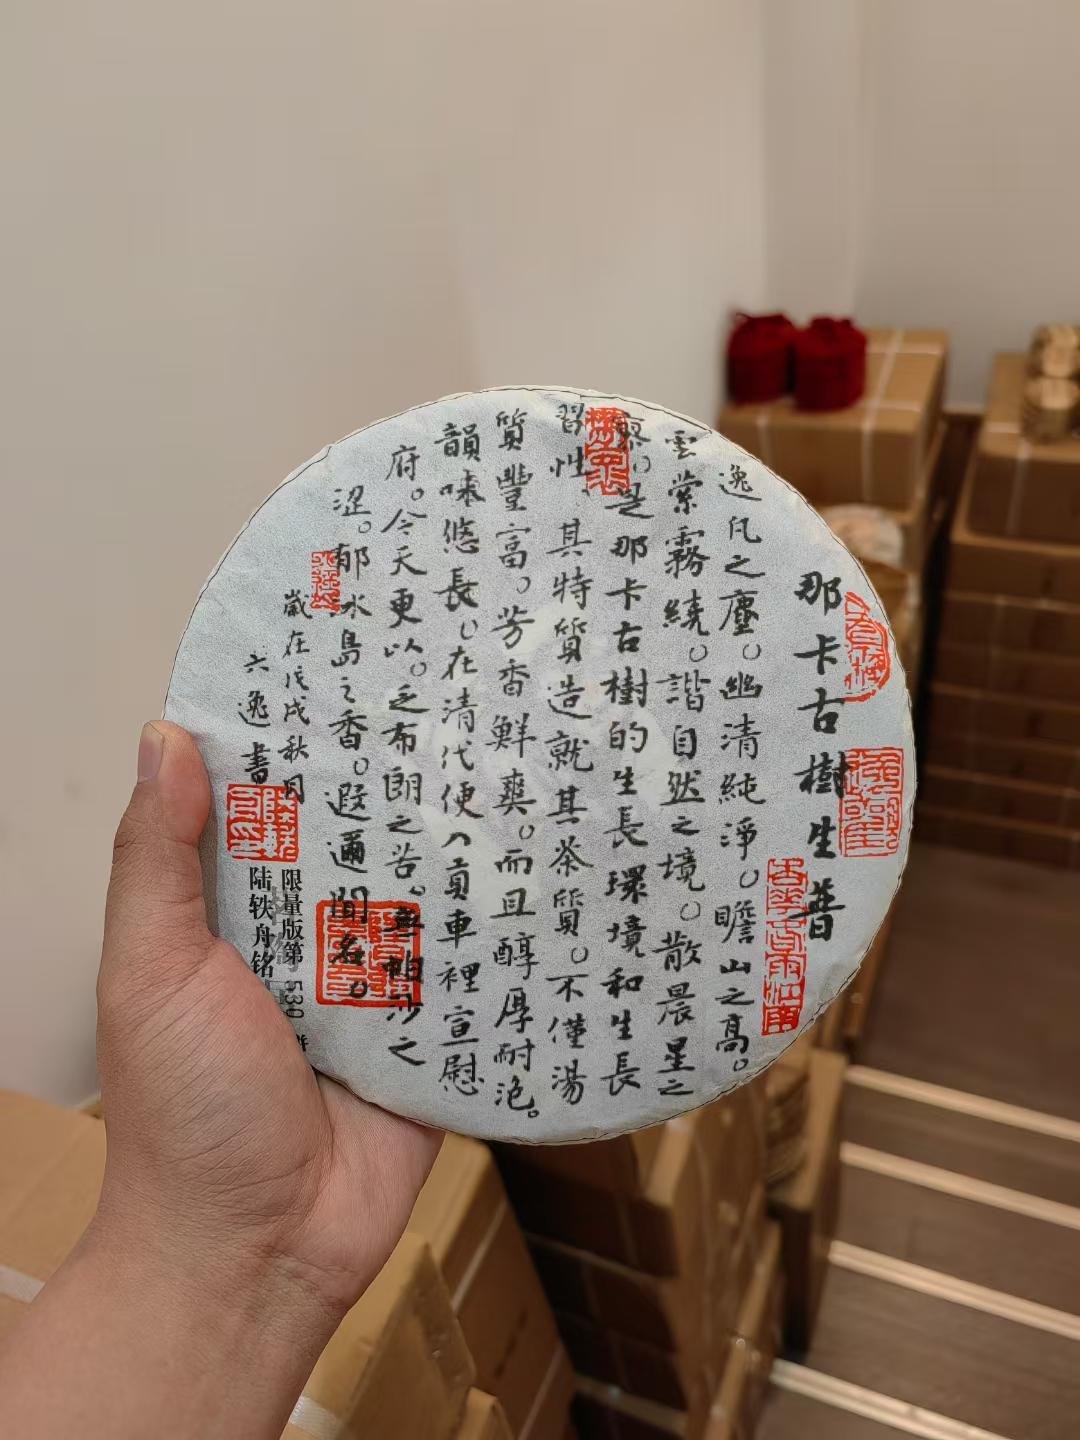 那卡古樹生普
逸凡之塵。幽清純淨。瞻山之高。
雲縈霧繞。諧自然之境。散晨星之
是那卡古樹的生長環境和生長
習性 其特質造就其茶質。不僅湯
質豐富。芳香鮮爽。而且醇厚耐泡。
韻味悠長。在清代便入貢車裡宣慰
府。今天更以。乏布朗之苦。無帕沙之
涩。 冰島之香。遐邇聞名。
歲在戊戌秋月
六逸書
限量版第 530 饼
陆轶舟铭